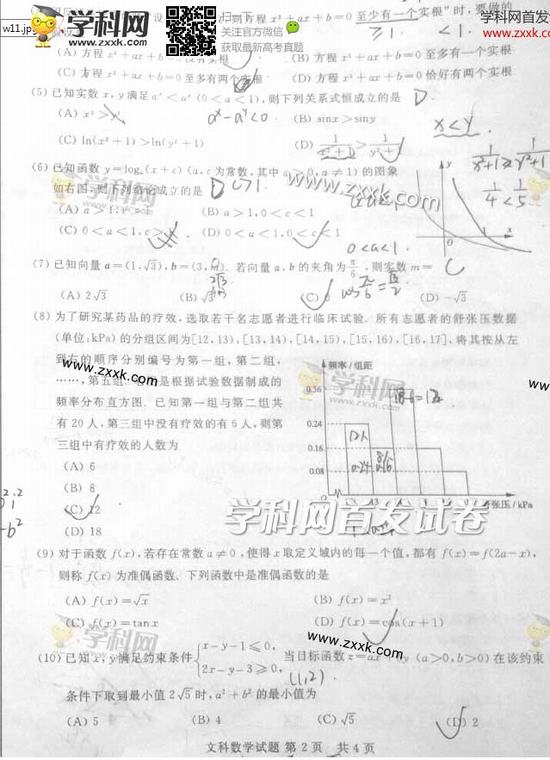 学科网
www.zxxk.com
扫一扫
关注官方微信
获取最新高考真题
学科网首发
www.zxxk.com
则方程 x³+ax+b=0 至少有一个实根"时,要做的
(A) 方程 x³+ax+b=0 没有实根 (B) 方程 x³+ax+b=0 至多有一个实根
(C) 方程 x³+ax+b=0 至多有两个实根 (D) 方程 x³+ax+b=0 恰好有两个实根
(5) 已知实数 x,y 满足 aˣ<aʸ (0<a<1),则下列关系式恒成立的是 D
(A) x³>y³ (B) sinx>siny
(C) ln(x²+1)>ln(y²+1) (D) 1/(x²+1)>1/(y²+1)
aˣ-aʸ<0
x<y
1/4<1/5
(6) 已知函数 y=logₐ(x+c) (a,c为常数,其中 a>0,a≠1) 的图象
如右图,则下列结论成立的是 D
(A) a>1,c>1 (B) a>1,0<c<1
(C) 0<a<1,c>1 (D) 0<a<1,0<c<1
0<a<1.
(7) 已知向量 a=(1,√3),b=(3,m). 若向量 a,b 的夹角为 π/6,则实数 m=
(A) 2√3 (B) √3 (C) 0 (D) -√3
cos π/6 = √3/2
(8) 为了研究某药品的疗效,选取若干名志愿者进行临床试验. 所有志愿者的舒张压数据
(单位:kPa) 的分组区间为[12,13),[13,14),[14,15),[15,16),[16,17],将其按从左
到右的顺序分别编号为第一组,第二组,
……,第五组. 是根据试验数据制成的
频率分布直方图. 已知第一组与第二组共
有 20 人,第三组中没有疗效的有 6 人,则第
三组中有疗效的人数为
(A) 6
(B) 8
(C) 12
(D) 18
频率/组距
0.36
0.24
0.16
0.08
舒张压/kPa
18-6=12
学科网首发试卷
www.zxxk.com
(9) 对于函数 f(x),若存在常数 a≠0,使得 x 取定义域内的每一个值,都有 f(x)=f(2a-x),
则称 f(x) 为准偶函数. 下列函数中是准偶函数的是
(A) f(x)=√x (B) f(x)=x²
(C) f(x)=tanx (D) f(x)=cos(x+1)
(10) 已知 x,y 满足约束条件 {x-y-1≤0, 2x-y-3≥0, 当目标函数 z=ax+by (a>0,b>0) 在该约束
条件下取到最小值 2√5 时,a²+b² 的最小值为
(A) 5 (B) 4 (C) √5 (D) 2
文科数学试题 第 2 页 共 4 页